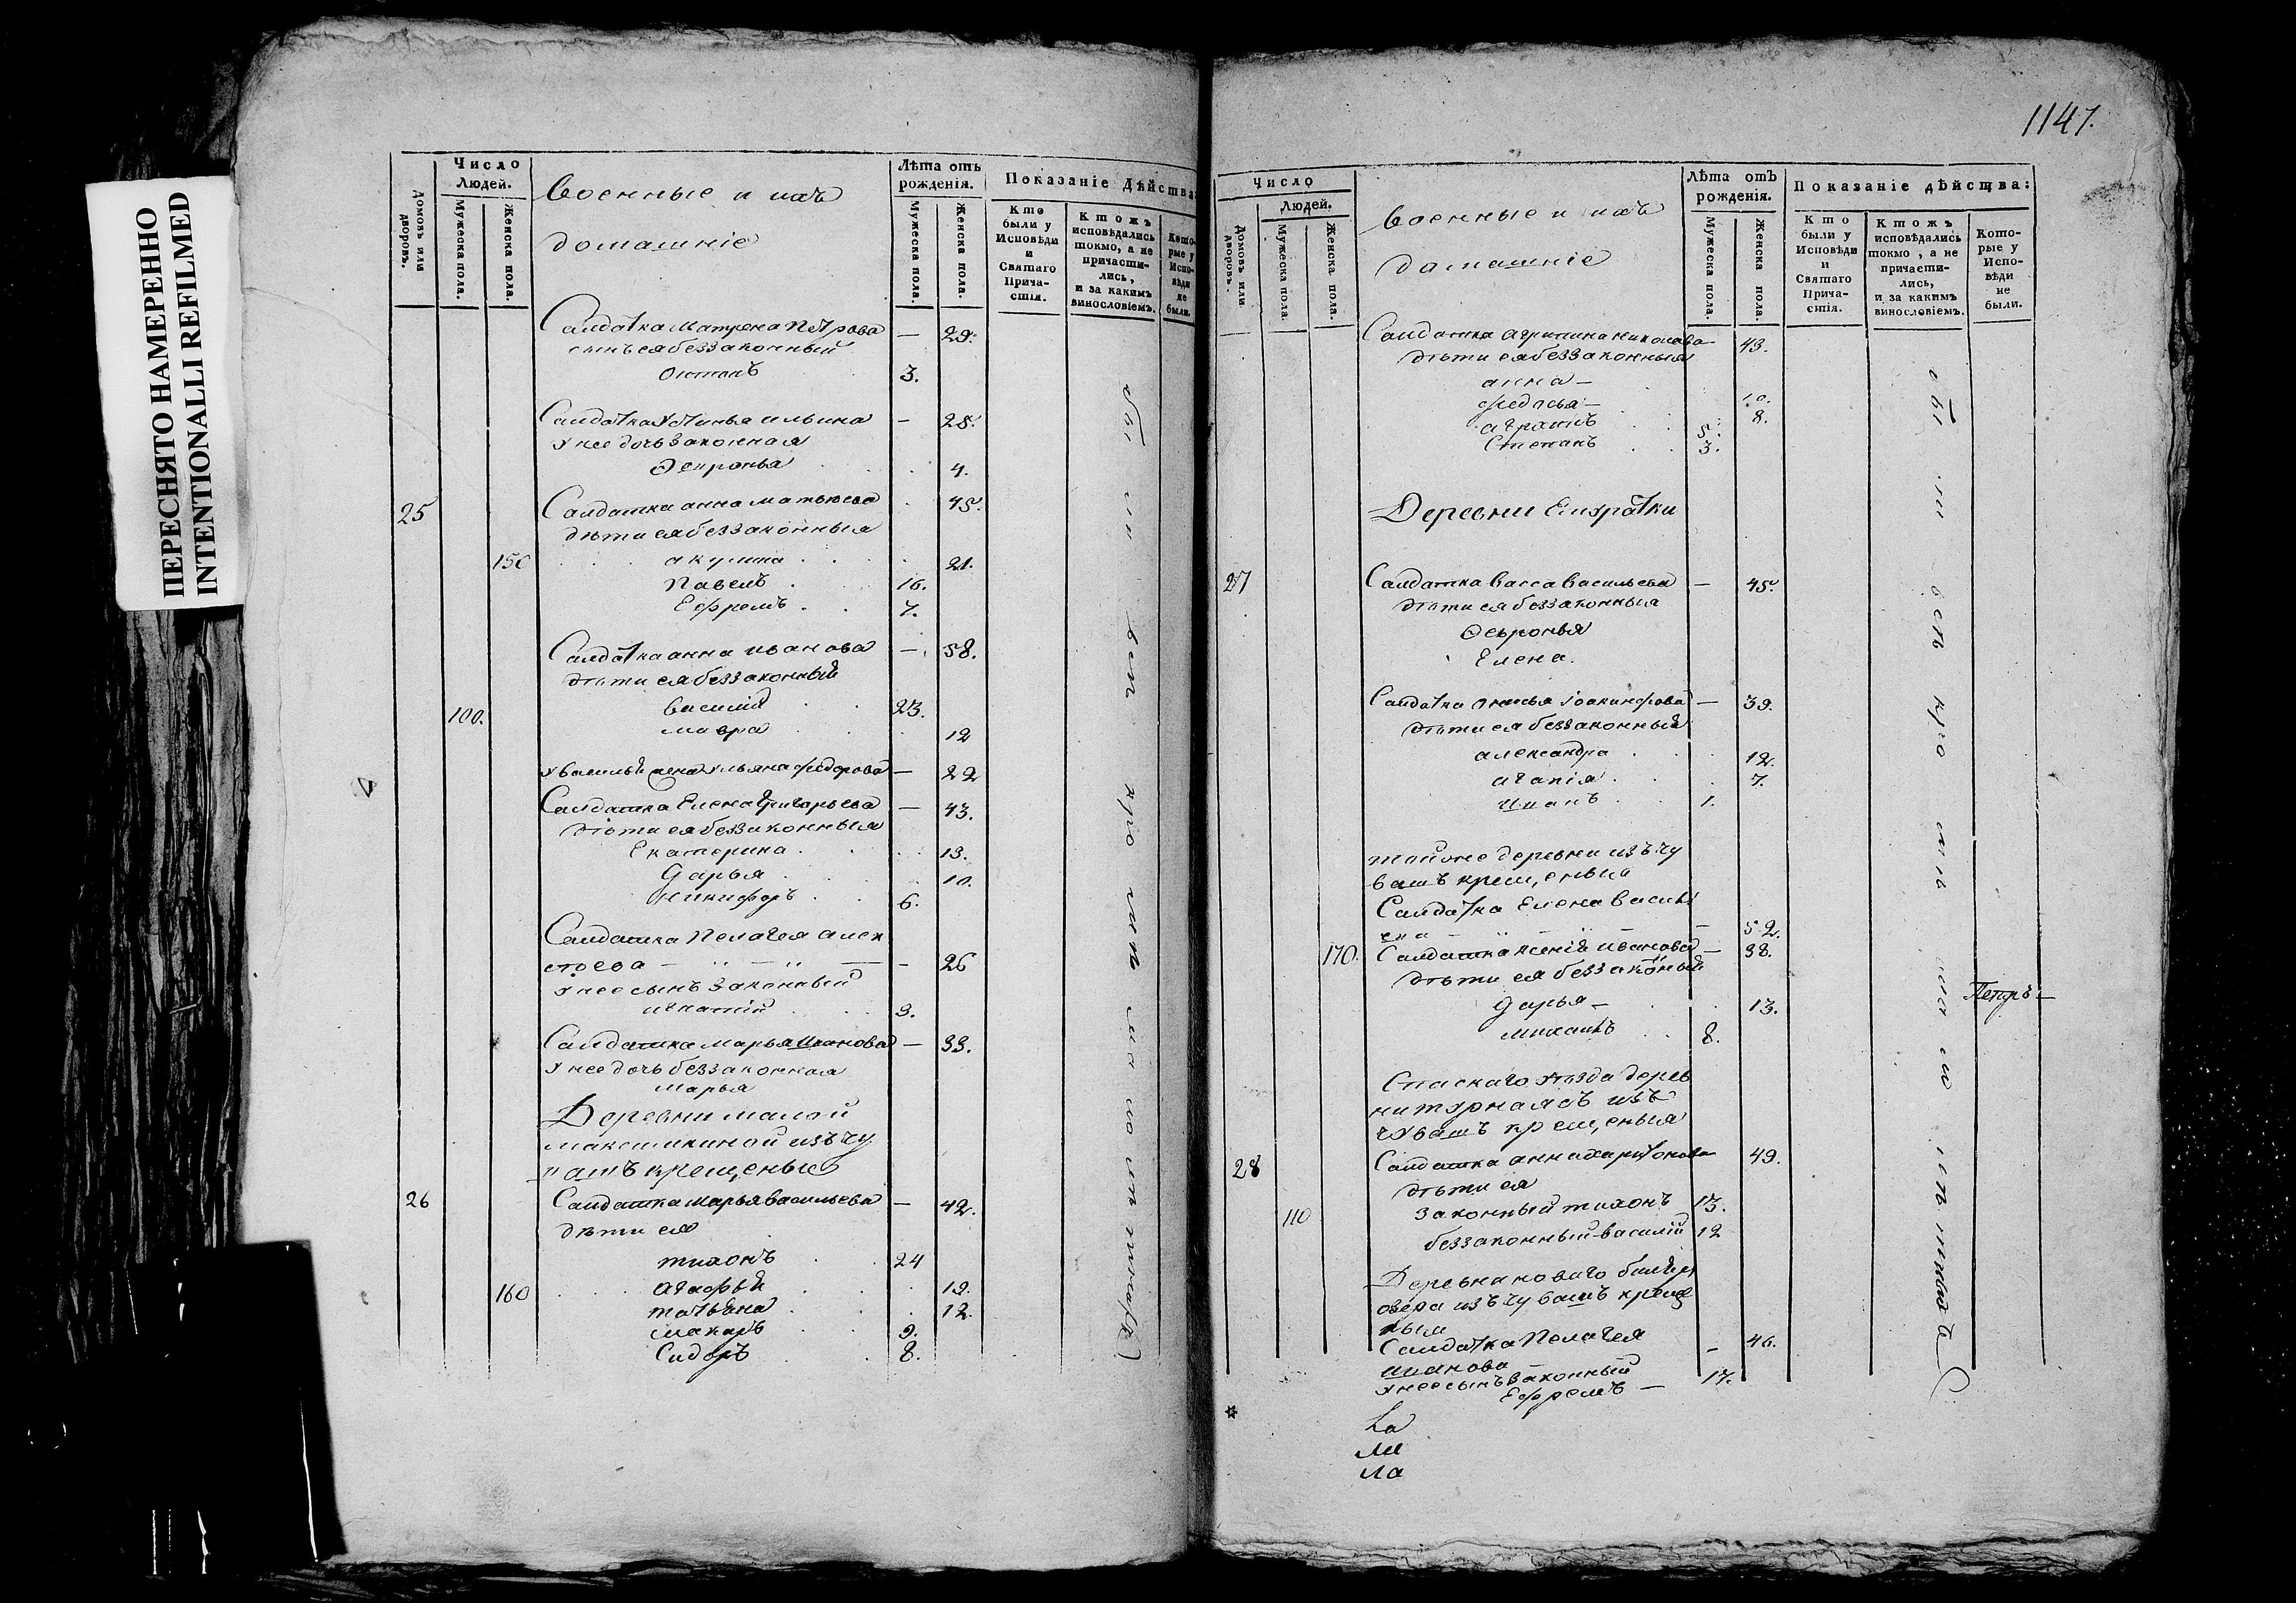 ПЕРЕСНЯТО НАМЕРЕННО
INTENTIONALLI REFILMED
Число
Людей.
Домовъ или дворовъ.
Мужеска пола.
Женска пола.
Военные и ихъ
домашніе
Лѣта отъ
рожденія.
Мужеска пола.
Женска пола.
Показаніе дѣйства:
Кто
были у
Исповѣди
и
Святаго
Прича-
стія.
Ктожъ
исповѣдались
токмо, а не
причасти-
лись,
и за какимъ
винословіемъ.
Кото-
рые у
Испо-
вѣди
не
были.
Салдатка Матрена Петрова — 29.
сынъ ея беззаконный
3.
Салдатка Устинья ильина — 25.
У нее дочь законная
Феѳронья 4.
25 Салдатка анна Матвеева 45.
дѣти ея беззаконныя
150 акулина 21.
Павелъ 16.
Ефремъ 7.
Салдатка анна иванова — 58.
дѣти ея беззаконный
100. василій 23.
мавра 12
Ульяна федорова — 22
Салдатка Елена Григорьева — 43.
дѣти ея беззаконныя
Екатерина 13.
Дарья 10.
Никифоръ 6.
Салдатка Пелагея алек
сѣева — 26
У нее сынъ законный
игнатій 3.
Салдатка марья иванова — 33.
У нее дочь беззаконная
Марья
Деревни малой
максимкиной изъ чу
вашъ крещеные
26 Салдатка марья васильева — 42.
дѣти ея
тихонъ 24
160 агафья 19.
татьяна 12.
макаръ 9.
Сидоръ 8.
1147.
Число
Людей.
Домовъ или дворовъ.
Мужеска пола.
Женска пола.
Военные и ихъ
домашніе
Лѣта отъ
рожденія.
Мужеска пола.
Женска пола.
Показаніе дѣйства:
Кто
были у
Исповѣди
и
Святаго
Прича-
стія.
Ктожъ
исповѣдались
токмо, а не
причасти-
лись,
и за какимъ
винословіемъ.
Кото-
рые у
Испо-
вѣди
не
были.
Салдатка агрипина николаева 43.
дѣти ея беззаконныя
анна — 10.
федосья — 8.
5.
Степанъ 3.
Деревни
27 Салдатка васса васильева — 45.
дѣти ея беззаконныя
Феѳронья
Елена.
Салдатка анисья Іоакинфова — 39.
дѣти ея беззаконныя
александра 12.
агапія 7.
иванъ 1.
тойже деревни изъ чу
вашъ крещеныя
Салдатка Елена василь
ева — 52.
170. Салдатка ксенія иванова — 38.
дѣти ея беззаконныя
Дарья — 13.
михаилъ 8.
Петръ —
Спаскаго уѣзда дерев
ни изъ
чувашъ крещеныя
28 Салдатка анна харитонова 49.
дѣти ея
110 законный тихонъ 13.
беззаконный василій 12
Деревни новаго
озера изъ чувашъ креще
ныя
Салдатка Пелагея — 46.
иванова
У нее сынъ законный
Ефремъ — 17.